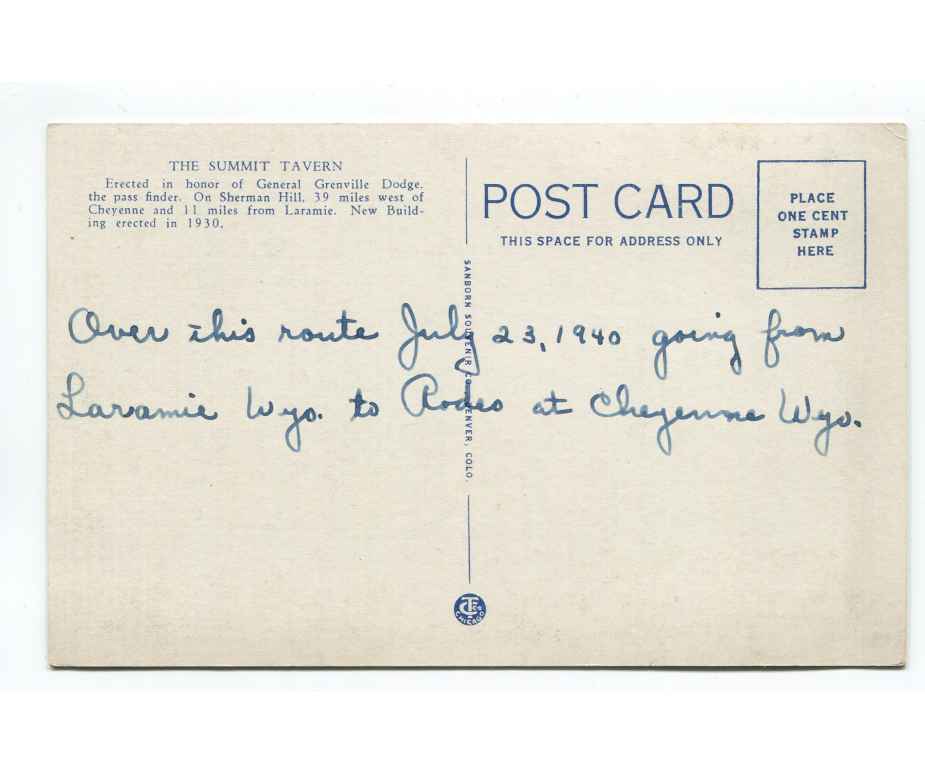 THE SUMMIT TAVERN
Erected in honor of General Grenville Dodge,
the pass finder. On Sherman Hill, 39 miles west of
Cheyenne and 11 miles from Laramie. New Build-
ing erected in 1930.
POST CARD
THIS SPACE FOR ADDRESS ONLY
PLACE
ONE CENT
STAMP
HERE
SANBORN SOUVENIR CO., DENVER, COLO.
Over this route July 23, 1940 going from
Laramie Wyo. to Rodeo at Cheyenne Wyo.
CHICAGO